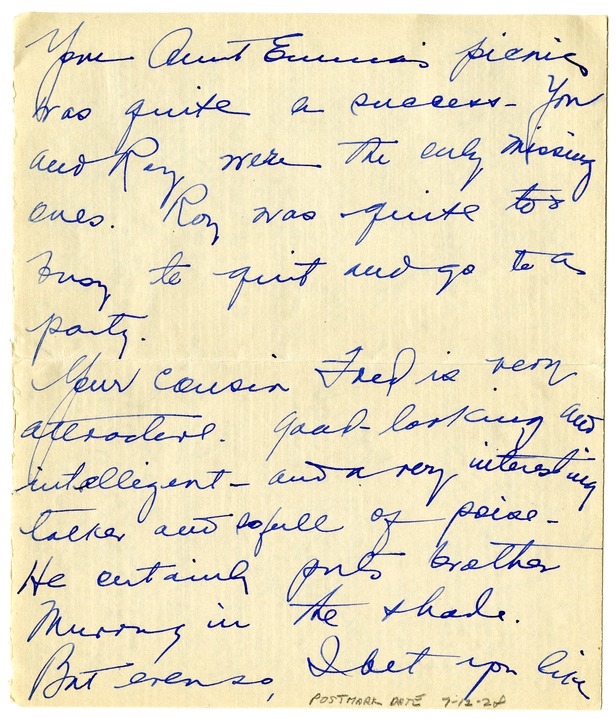 Your Aunt Emma's picnic
was quite a success - You
and Roy were the only missing
ones. Roy was quite too
busy to quit and go to a
party.
Your cousin Fred is very
attractive. Good-looking and
intelligent - and a very interesting
talker and so full of poise -
He certainly puts brother
Murray in the shade.
But even so, I bet you like
POSTMARK DATE 9-12-28